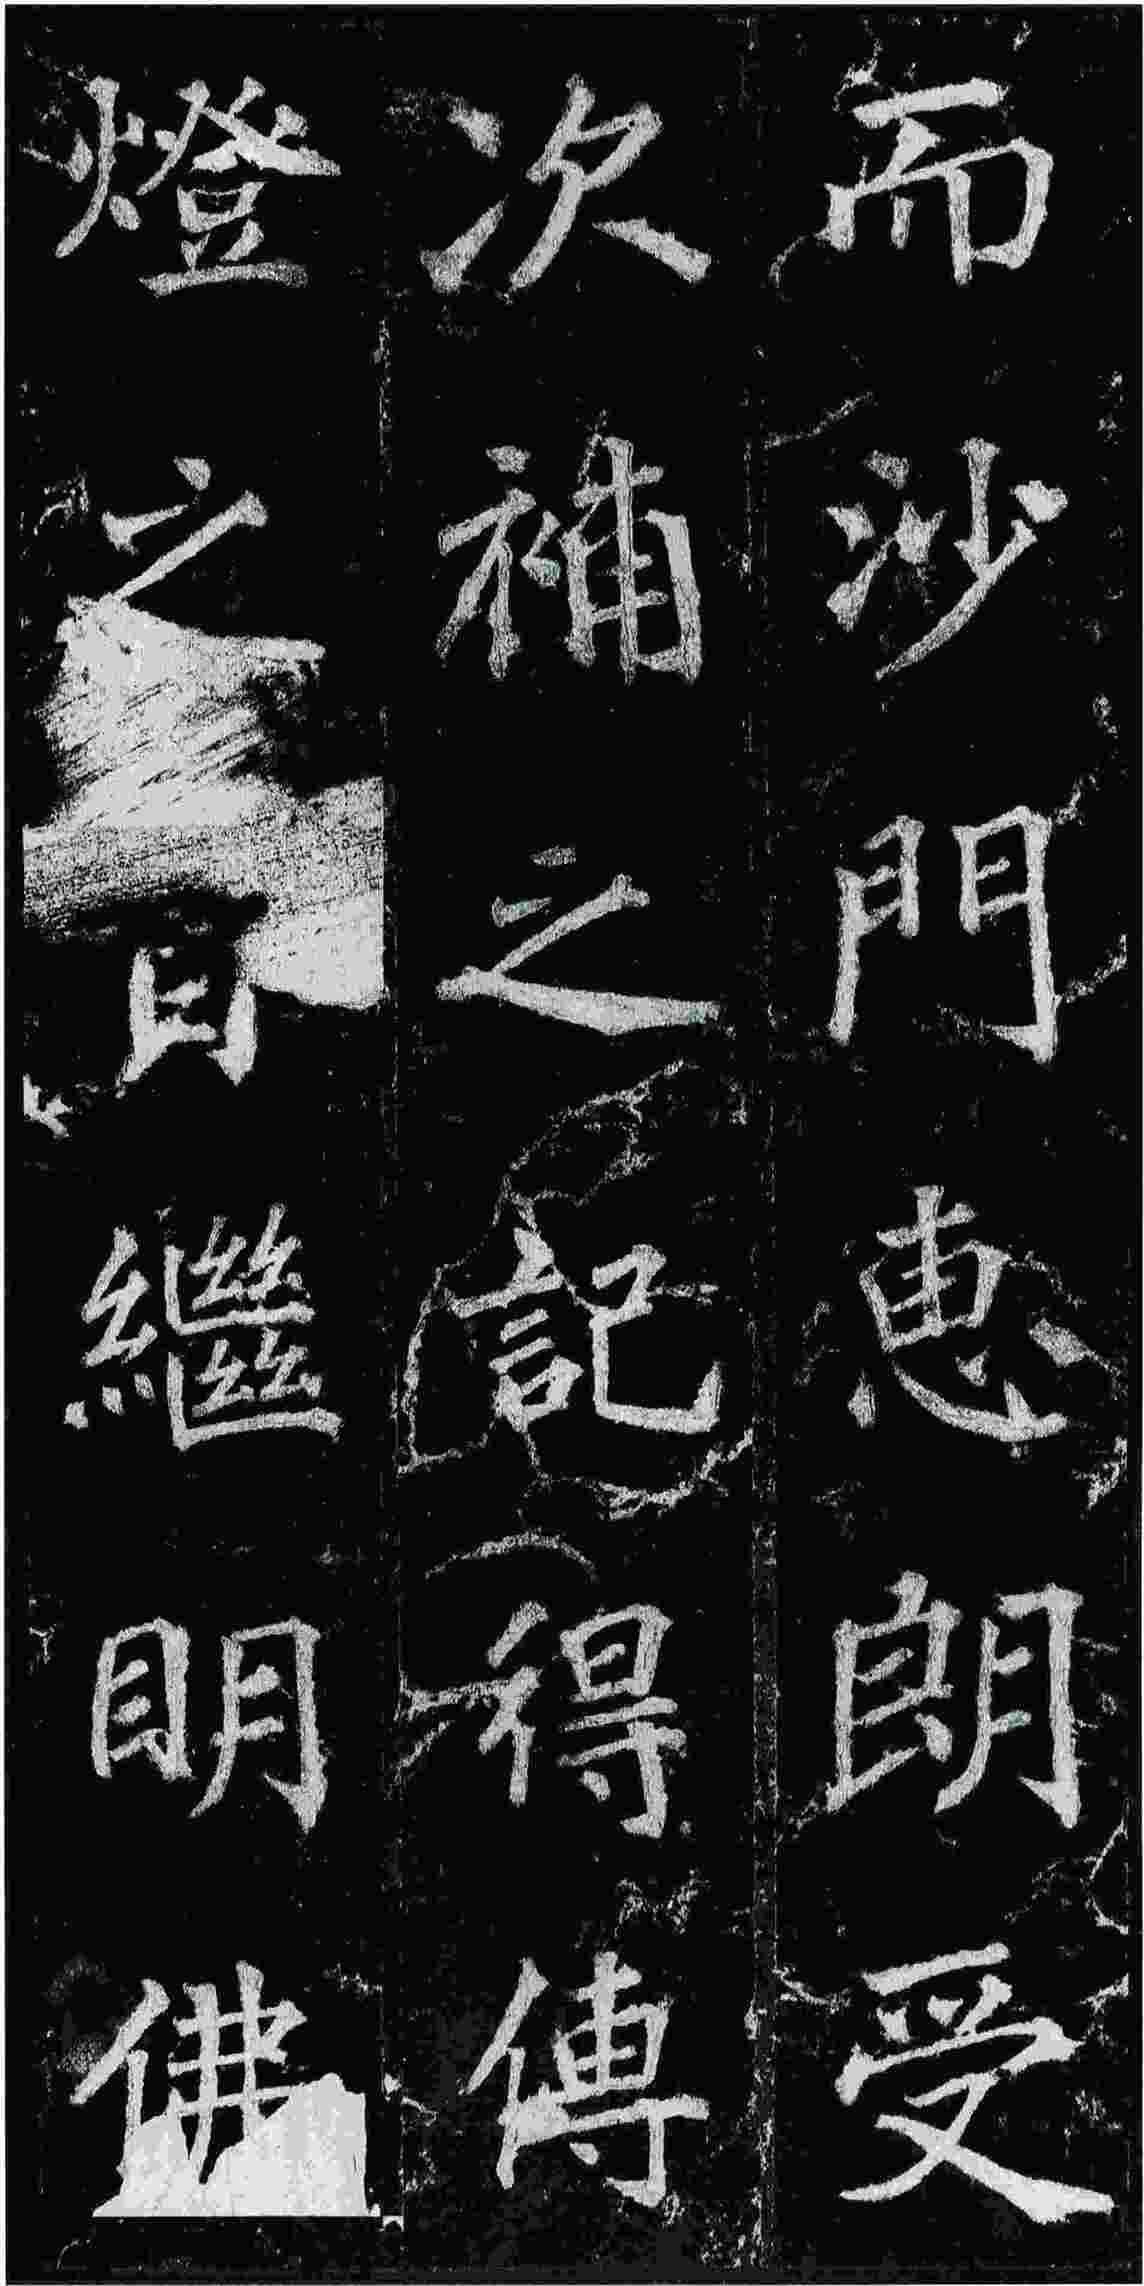 而沙門惠朗受
次補之記得傳
燈之旨繼眀佛